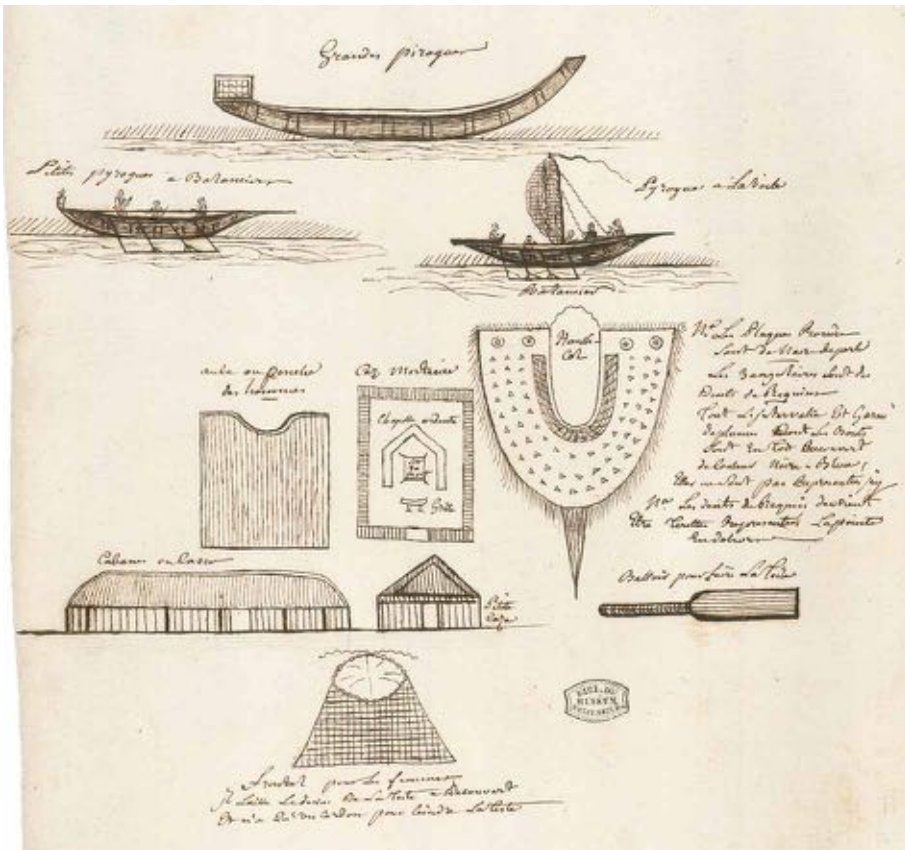 Grandes pirogues
Petites pyrogues a Balancier
Pyrogues a La Voile
Balancier
Hausse
Col
Nª Les Plaques Rondes
Sont de Nacre de perle
Les Triangulaires sont des
Dents de Requins
Tout L'Intervalle Est Garni
de plumes Dont Les Bouts
Sont En Recouvert
de Couleur Noire Bleue
Elles ne sont pas Representées icy
Nª Les dents de Requin devroient
Etre toutes Representées La pointe
En dehors
des hommes
Chapelle ardente
Grille
Cabanes ou Cases
Petite
Caze
Battoir pour faire La Toile
pour Les femmes
Laisse Le dessus De La Teste a Decouvert
Et n'a qu'un Cordon pour Ceindre La Teste
MUSÉUM